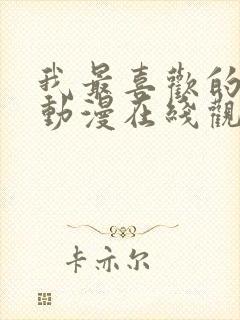 我最喜歡的
動漫在綫觀
卡亦尔